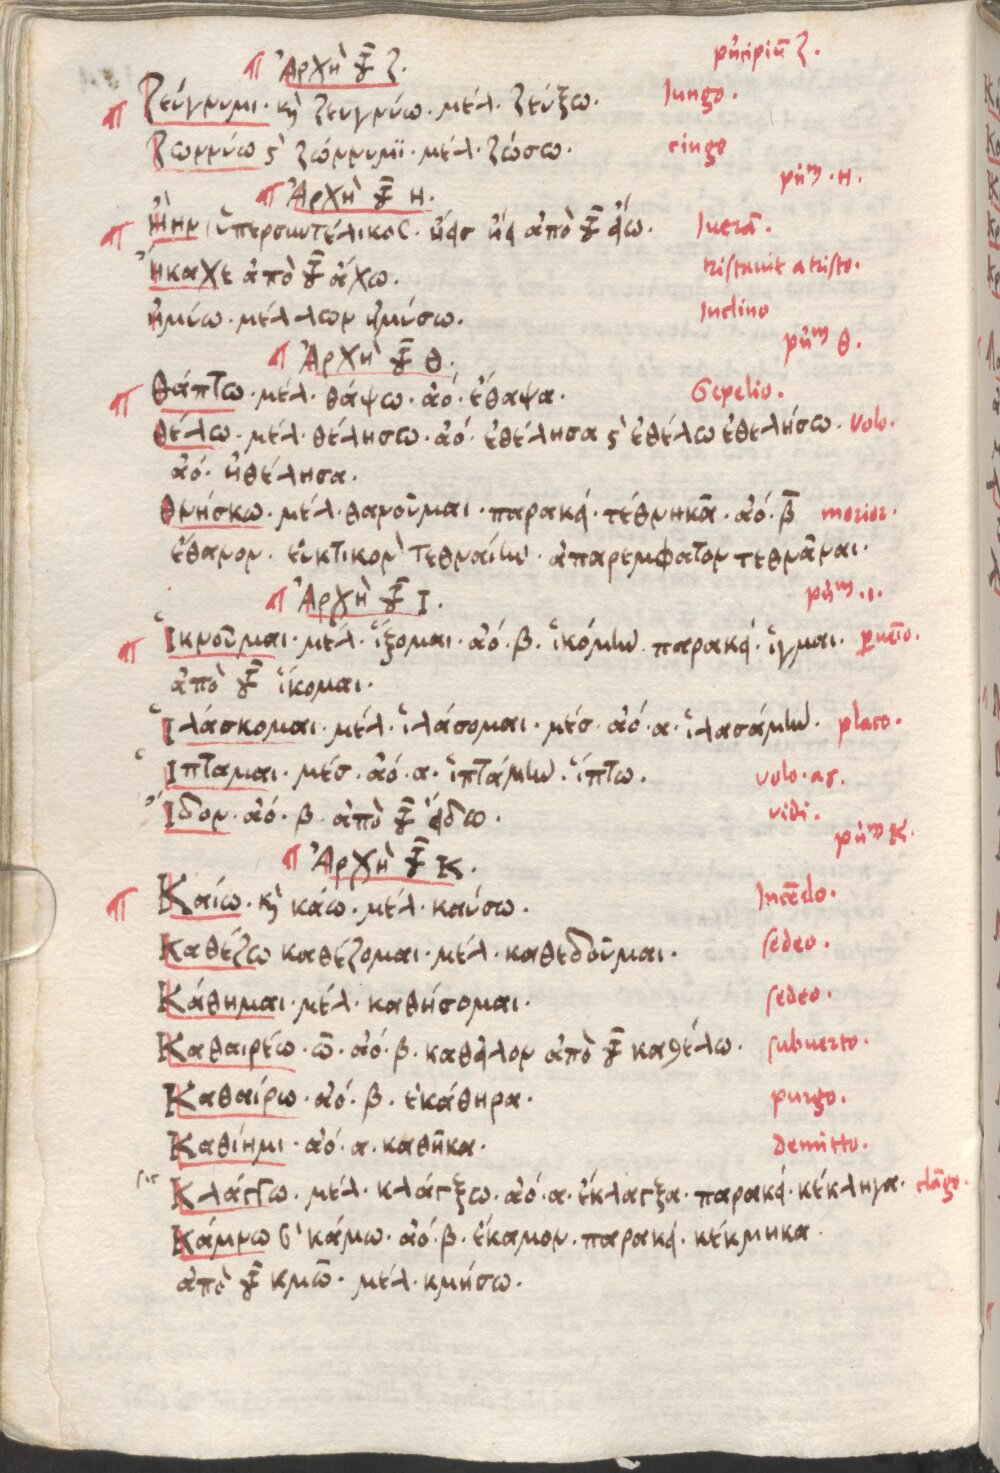 ¶ Ἀρχὴ τοῦ ζ. pͥncipiū ζ.
¶ Ζεύγνυμι· κὴ ζευγνύω· μέλ· ζεύξω. Iungo.
Ζωννύω ς̀ ζώννυμϊ· μέλ· ζώσω. cingo
¶ Ἀρχὴ τοῦ η. pͥnᵐ· η.
¶ Ἤην ὑπερσυντέλικος· ἀπὸ τοῦ Iuerā.
ἤκαχε ἀπὸ τοῦ ἄχω. tristauit a tristo.
ἠμύω· μέλλων ἠμύσω. Inclino
¶ Ἀρχὴ τοῦ θ. pͥnᵐ θ.
¶ θάπτω· μέλ· θάψω· ἀό· ἔθαψα. Sepelio.
θέλω· μέλ· θέλησω· ἀό· ἐθέλησα ς̀ ἐθέλω ἐθελήσω· Volo.
ἀό· ἠθέλησα.
θνήσκω· μέλ· θανοῦμαι· παρακεί· τέθνηκα· ἀό· β̄ morior.
ἔθανον· εὐκτικὸν τεθναίην· ἀπαρεμφατον τεθνᾶναι.
¶ Ἀρχὴ τοῦ Ι. pͥnᵐ·ι.
¶ Ἱκνοῦμαι· μέλ· ἵξομαι· ἀό· β. ἱκόμην παρακεί· ἵγμαι.
ἀπὸ τοῦ ἵκομαι.
Ἱλάσκομαι· μέλ· ἱλάσομαι· μέσ· ἀό· α· ἱλασάμην. placo.
Ἵπταμαι· μέσ· ἀό· α· ἱπτάμην· ἵπτω. volo·as.
Ἴδον· ἀό· β· ἀπὸ τοῦ εἴδω. vidi.
¶ Ἀρχὴ τοῦ Κ. pͥnᵐ K.
¶ Καίω· κὴ κάω· μέλ· καύσω. Incēdo.
Καθέζω καθέζομαι· μέλ· καθεδοῦμαι. sedeo.
Κάθημαι· μέλ· καθήσομαι. sedeo.
Καθαιρέω· ῶ· ἀό· β· καθεῖλον ἀπὸ τοῦ καθέλω. subuerto.
Καθαίρω· ἀό· β· ἐκάθηρα. purgo.
Καθίημι· ἀό· α· καθῆκα. demitto.
Κλάγγω· μέλ· κλάγξω· ἀό· α· ἔκλαγξα· παρακεί· κέκληγα. clāgo.
Κάμνω ϛ̀ κάμω· ἀό· β· ἔκαμον· παρακεί· κέκμηκα.
ἀπὸ τοῦ κμῶ· μέλ· κμήσω.